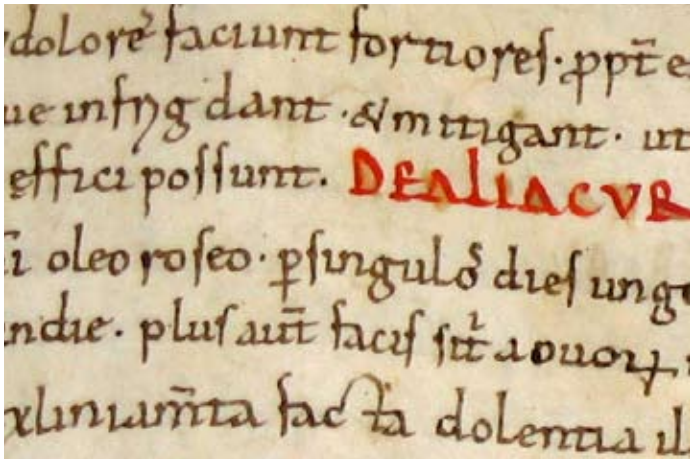 dolorē faciunt fortiores· ꝓpt̄ e
ue infrigdant· & mitigant· ut
effici possunt. DE ALIA CUR
oleo roseo· ꝑ singulos dies ung
ndie. plus aut̄ facis
facta dolentia